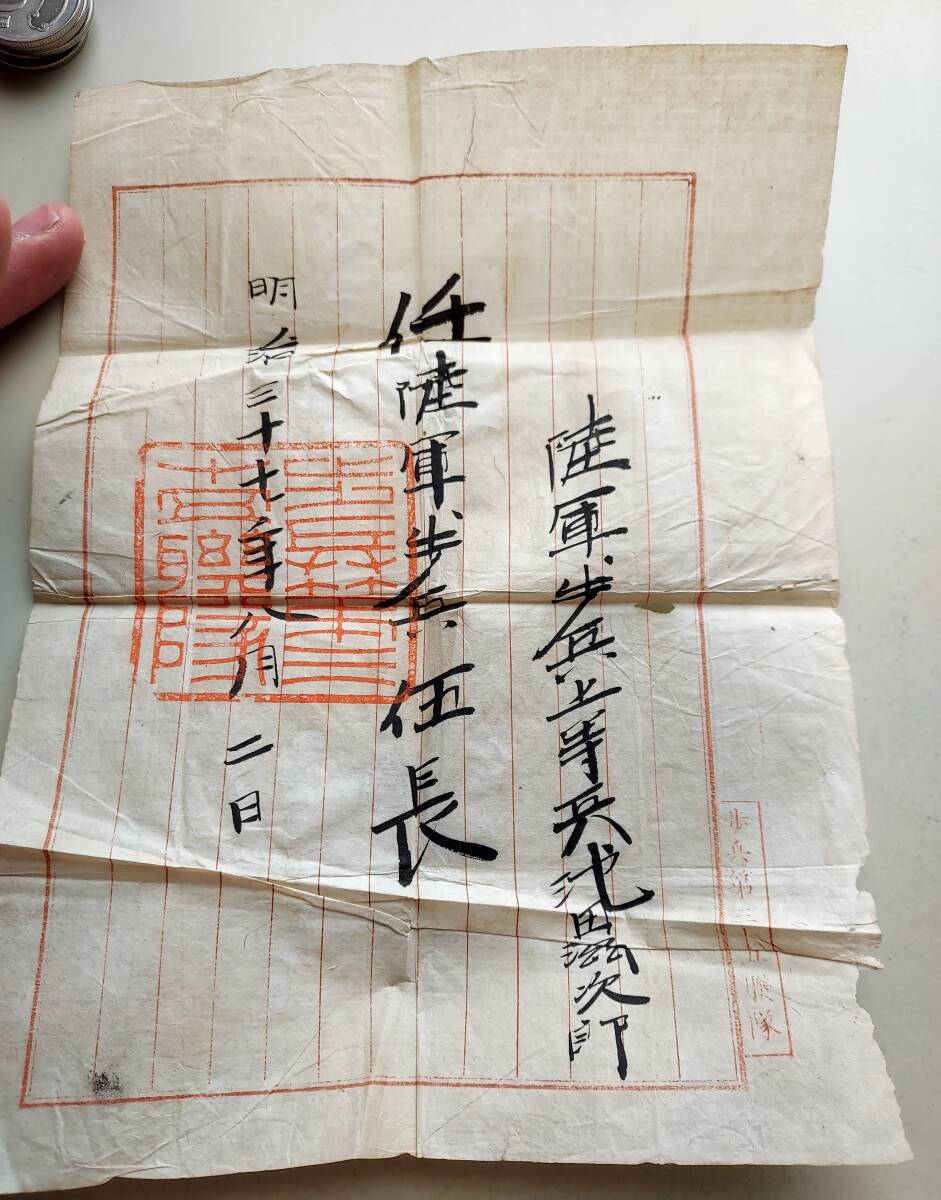 陸軍歩兵上等兵池田滋次郎
任陸軍歩兵伍長
明治三十七年八月二日
歩兵第三十聯隊